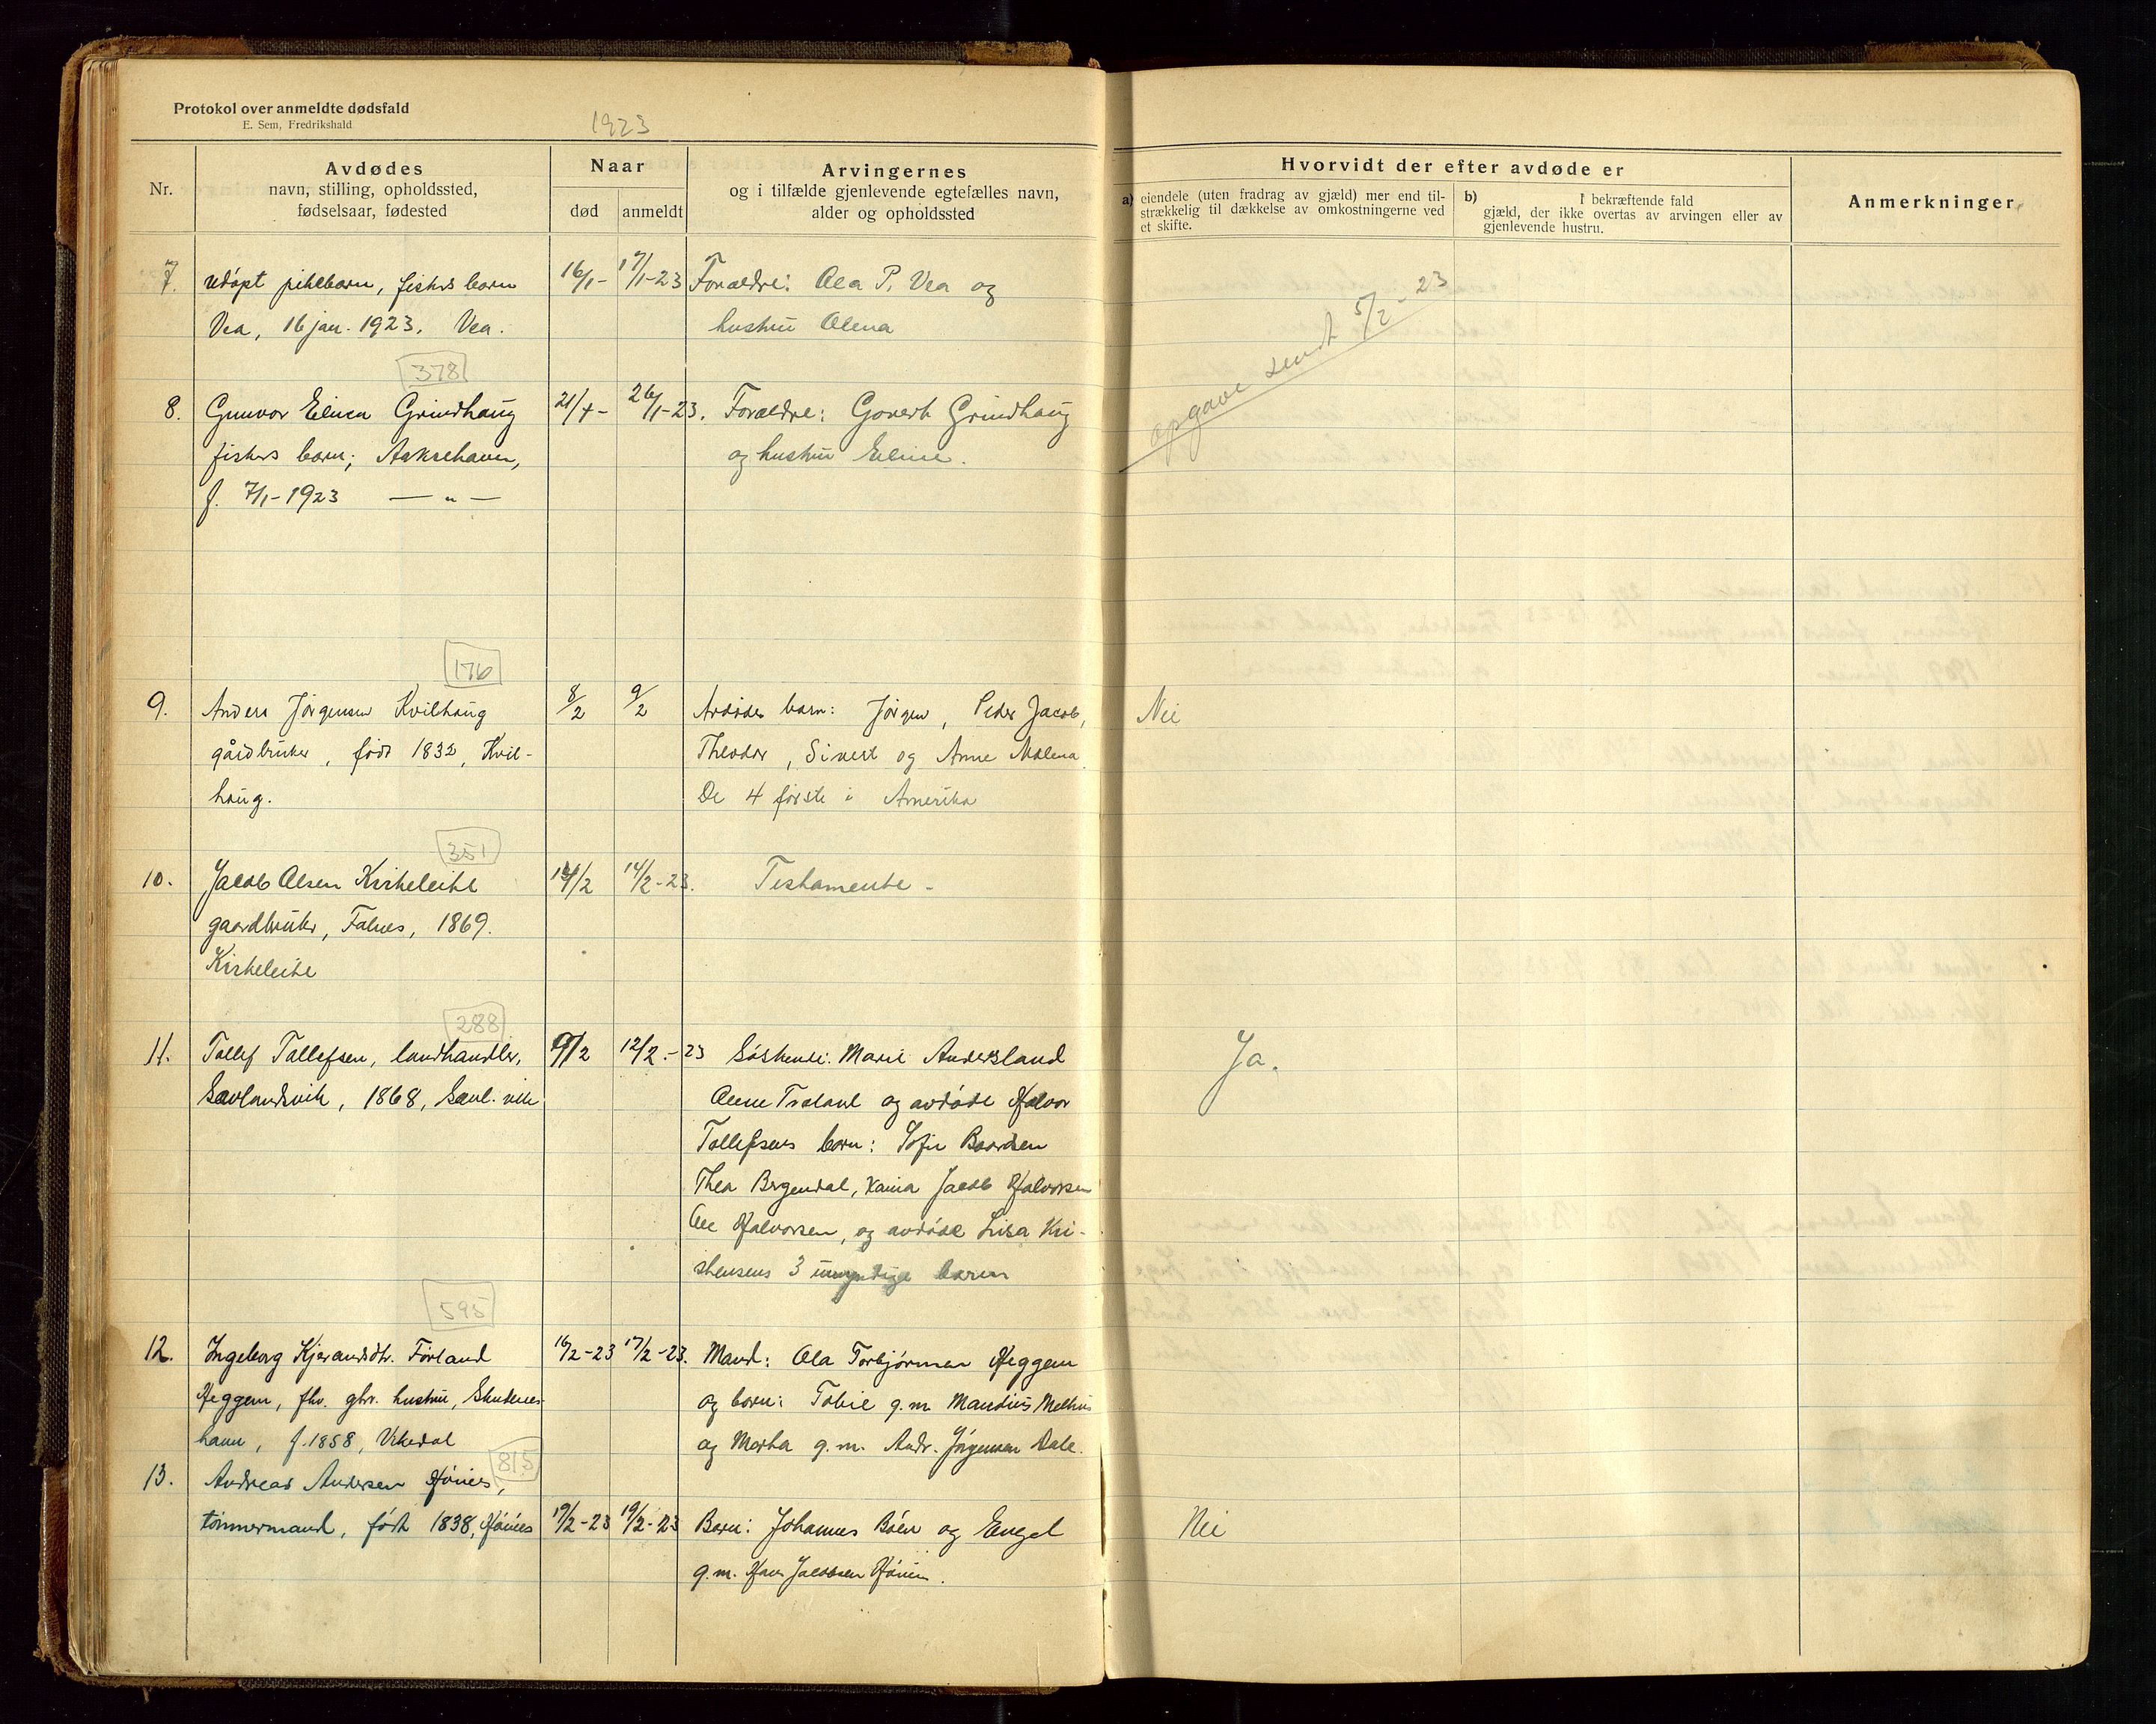 Protokol over anmeldte dødsfald
E. Sem, Fredrikshald
1923
Nr.
Avdødes
navn, stilling, opholdssted,
fødselsaar, fødested
Naar
død
anmeldt
Arvingernes
og i tilfælde gjenlevende egtefælles navn,
alder og opholdssted
Hvorvidt der efter avdøde er
a) eiendele (uten fradrag av gjæld) mer end til-
strækkelig til dækkelse av omkostningerne ved
et skifte.
b) I bekræftende fald
gjæld, der ikke overtas av arvingen eller av
gjenlevende hustru.
Anmerkninger
7. udøpt pikebarn, fiskers barn 16/1- 17/1-23 Forældre: Ola P. Vea og
Vea, 16 jan. 1923. Vea. hustru Olena
opgave sendt 5/2-23
378
8. Gunvor Elinea Grindhaug 21/1- 26/1-23. Forældre: Govert Grindhaug
fiskers barn; Aakrehavn, og hustru Eline.
f. 7/1-1923 — " —
176
9. Anders Jørgensen Kvilhaug 8/2 9/2 Avdødes barn: Jørgen, Peder Jacob, Nei
gårdbruker, født 1832, Kvil- Theodor, Sivert og Anne Malena
haug. De 4 første i Amerika
351
10. Jacob Olsen Kirkeleite 14/2 14/2-23. Testamente -
gaardbruker, Falnes, 1869.
Kirkeleite
288
11. Tollef Tollefsen, landhandler, 9/2 12/2.-23 Søskende: Marie Andersland Ja.
Sævlandsvik, 1868, Sævl.vik og avdøde Halvor
Tollefsens barn: Sofie Baardsen
Thea Bergendal, Jacob Halvorsen
Ole Halvorsen, og avdøde Lisa Kri-
stensens 3 umyndige barn
595
12. Ingeborg Kjerandsdtr. Førland 16/2-23 17/2-23. Mand: Ola Torbjørnsen Heggem
Heggem, fhv. gbr. hustru, Skudenes- og barn: Tobie g.m. Mandius
havn, f. 1858, Vikedal og Marta g.m. Andr. Jørgensen Dale.
815
13. Andreas Andersen Hønes,
tømmermand, født 1838, Hønes 19/2-23 19/2-23 Barn: Johannes Bøen og Engel Nei
g.m. Hans Jacobsen Hønes.